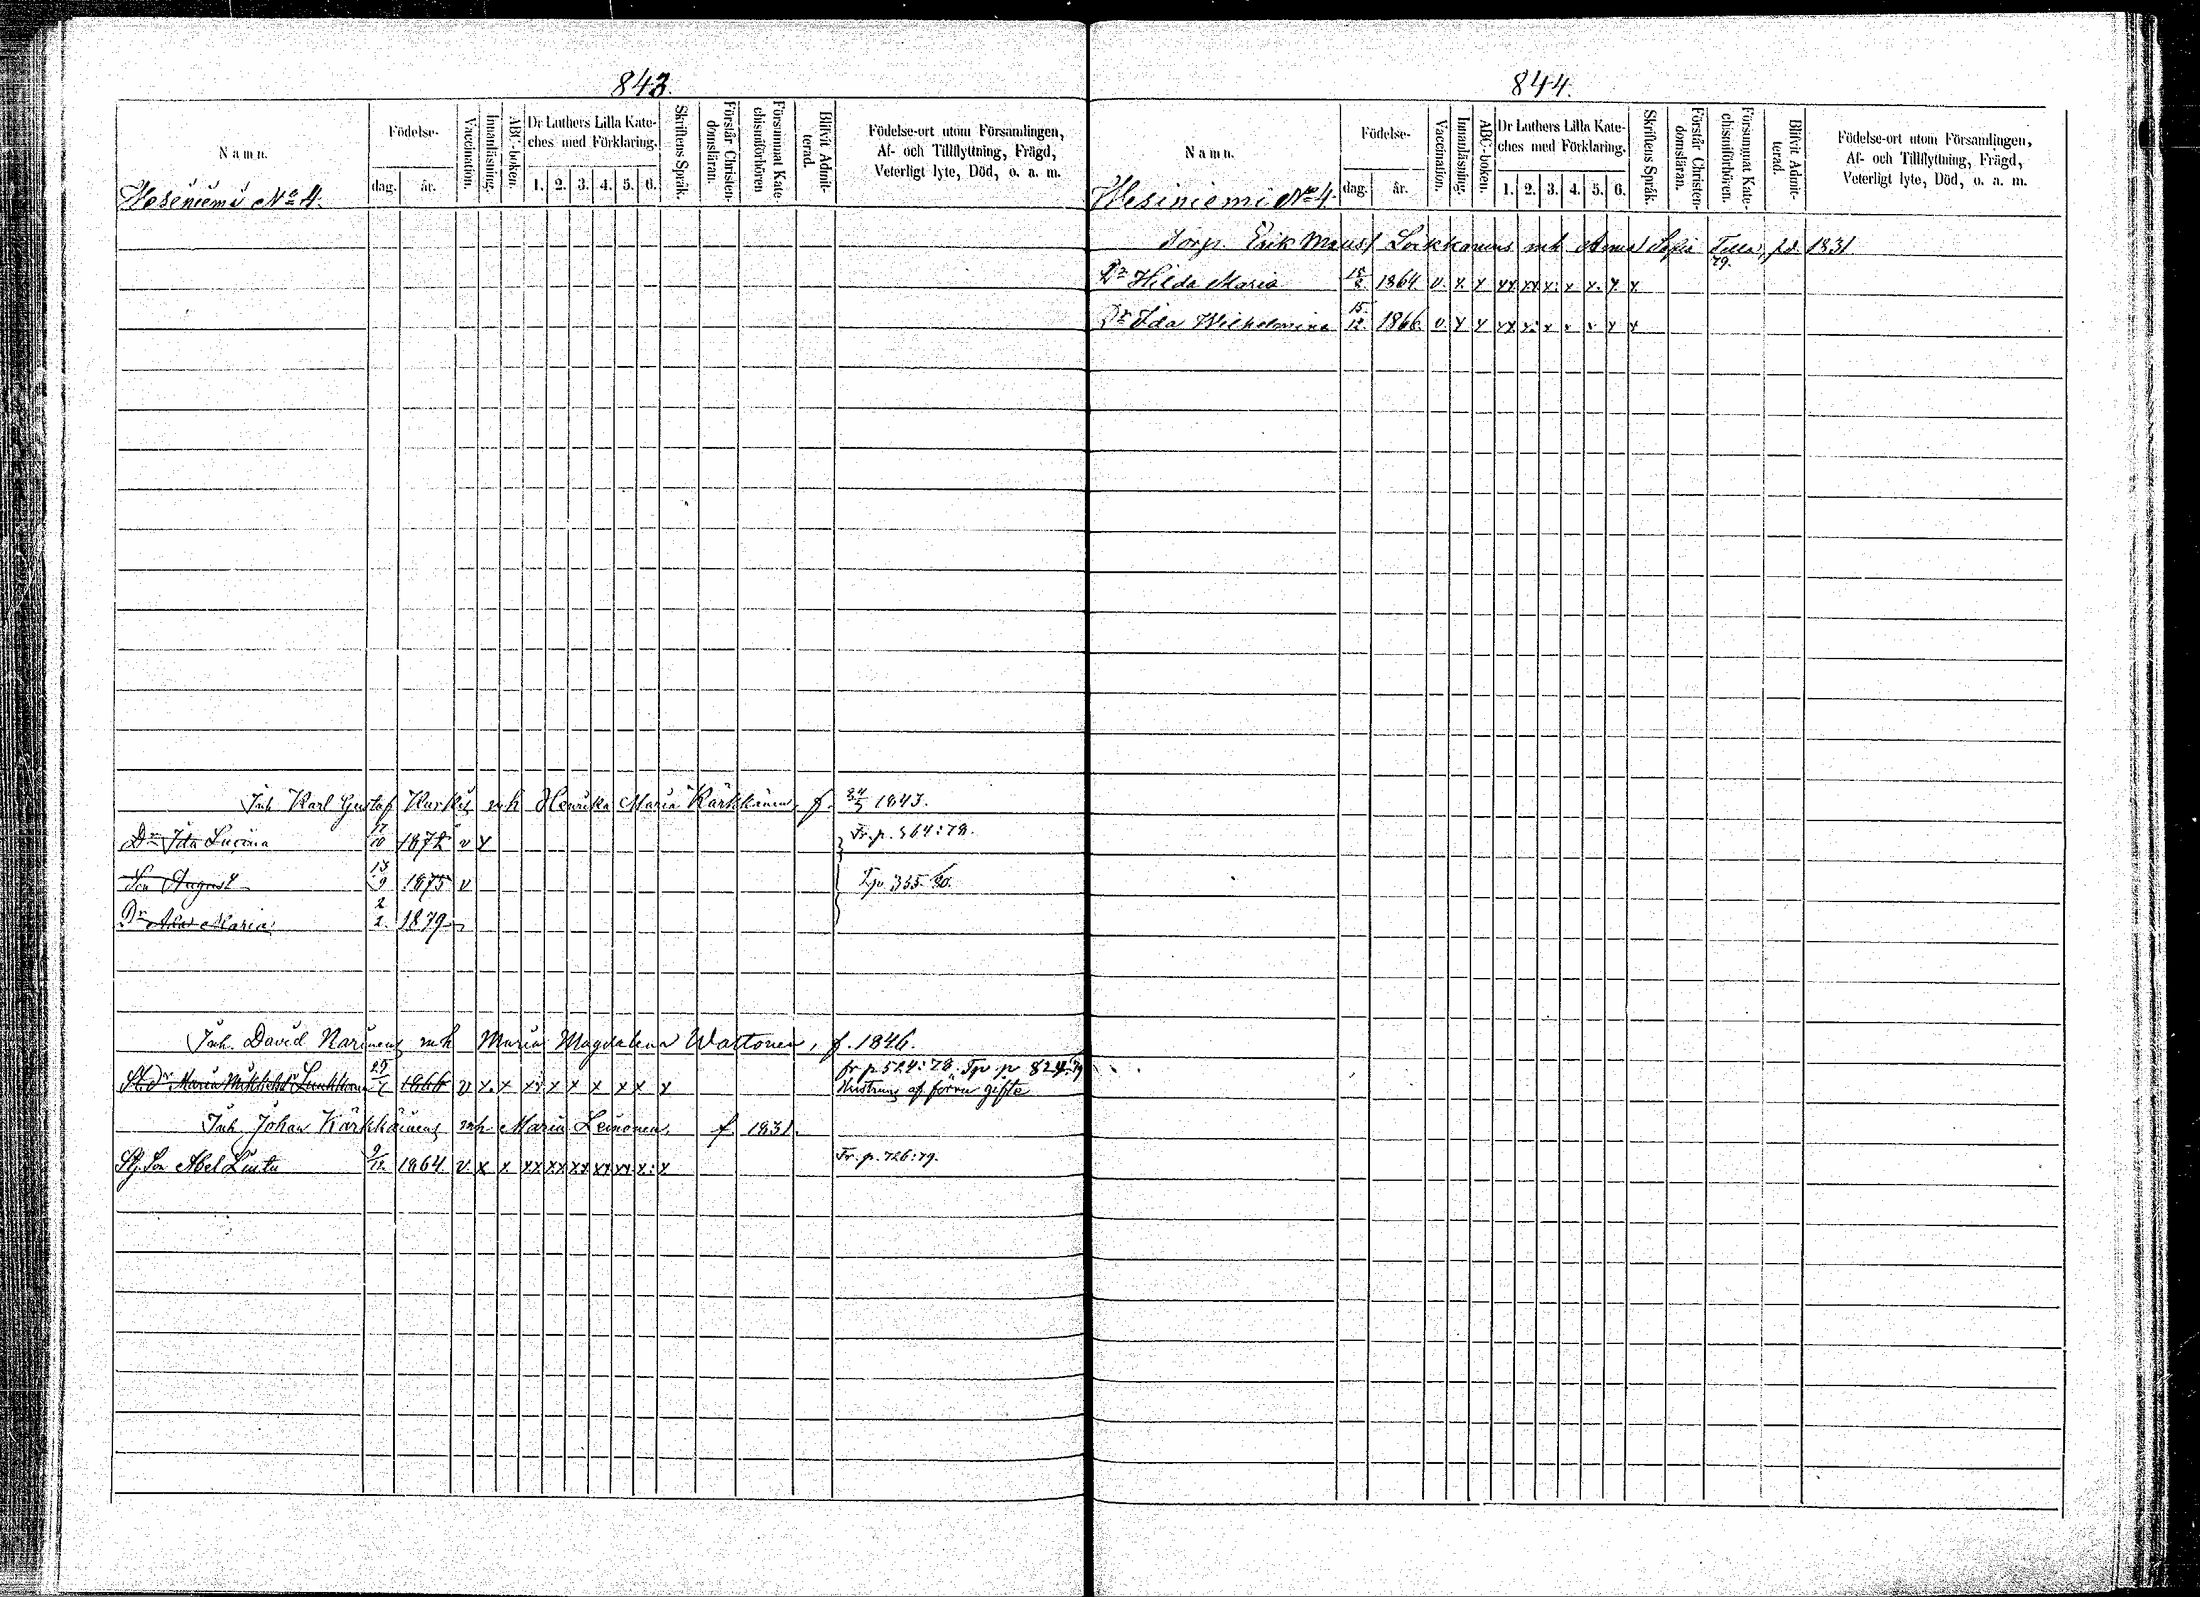 843.
Namn.
Födelse-
dag. år.
Vaccination.
Innanläsning.
ABC-boken.
Dr Luthers Lilla Kate-
ches med Förklaring.
1. 2. 3. 4. 5. 6.
Skriftens Språk.
Förstår Christen-
domsläran.
Försummat Kate-
chismiförhören
Blifvit Admit-
terad.
Födelse-ort utom Församlingen,
Af- och Tillflyttning, Frägd,
Veterligt lyte, Död, o. a. m.
Wesiniemi No 4.
Inh Karl Gustaf mh Henrika Maria Kärkkäinen, f. 1843.
Dr Ida Lucina 17/10 1872 v x Fr. p. 364:78.
Son August 13/9 1875 v
Dr Maria 2/2. 1879
Inh. David Narinens mh Maria Magdalena Wattonen, f. 1846.
fr p 524:78. Tp. p 824:79
St. Dr Maria 1866 v x. x x x x x x x Hustruns af förra gifte
Inh Johan Kärkkäinens mh. Maria Leinonen. f 1831.
Stf. Son Abel Lintu 9/12. 1864 v x x xx xx xx xx xx x: x Fr. p. 726:79.
844.
Namn.
Födelse-
dag. år.
Vaccination.
Innanläsning.
ABC-boken.
Dr Luthers Lilla Kate-
ches med Förklaring.
1. 2. 3. 4. 5. 6.
Skriftens Språk.
Förstår Christen-
domsläran.
Försummat Kate-
chismiförhören.
Blifvit Admit-
terad.
Födelse-ort utom Församlingen,
Af- och Tillflyttning, Frägd,
Veterligt lyte, Död, o. a. m.
Wesiniemi No 4.
Torp. Erik Loikkanens mh Anna Sofia 1831.
79.
Dr Hilda Maria 18/8 1864 v. x x xx xx x: x x. x x
Dr Ida Wilhelmina 15/12 1866 v x x xx x: x x x x x